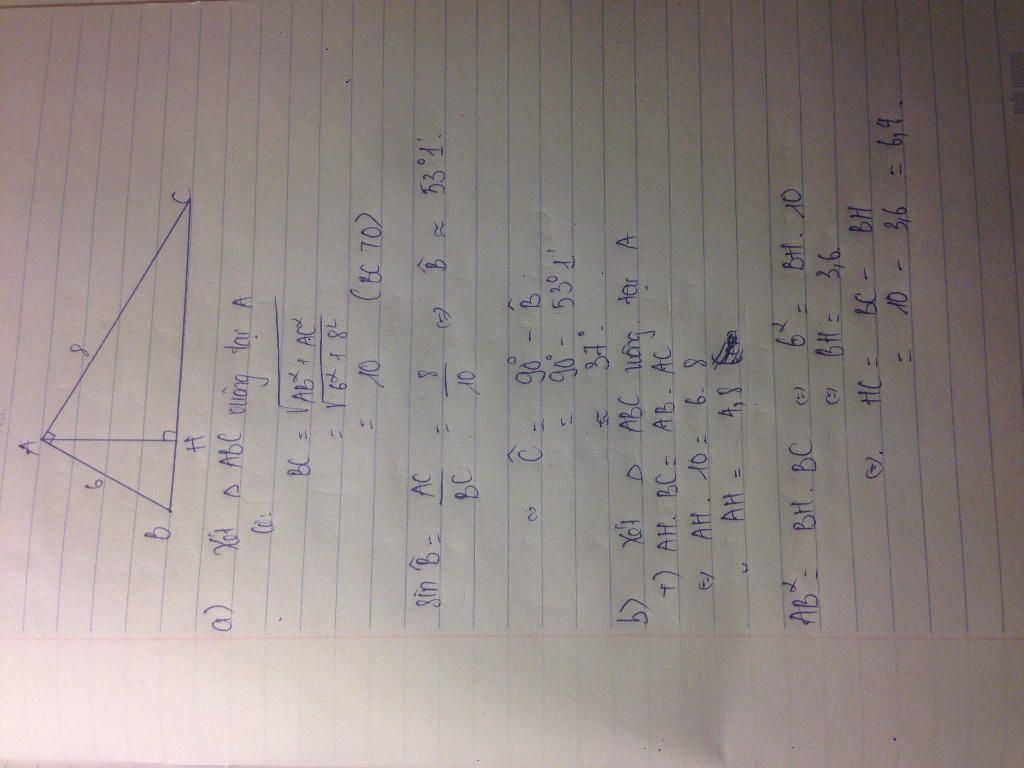 A
6
8
B
H
C
a) Xét Δ ABC vuông tại A
Có:
BC = √AB² + AC²
= √6² + 8²
= 10 (BC > 0)
sin B̂ = AC/BC = 8/10 ⇔ B̂ ≈ 53°1'.
⇔ Ĉ = 90° - B̂
= 90° - 53°1'
≈ 37°.
b) Xét Δ ABC vuông tại A
+) AH.BC = AB.AC
⇔ AH.10 = 6.8
AH = 4,8
AB² = BH.BC ⇔ 6² = BH.10
⇔ BH = 3,6
⇔. HC = BC - BH
= 10 - 3,6 = 6,4.